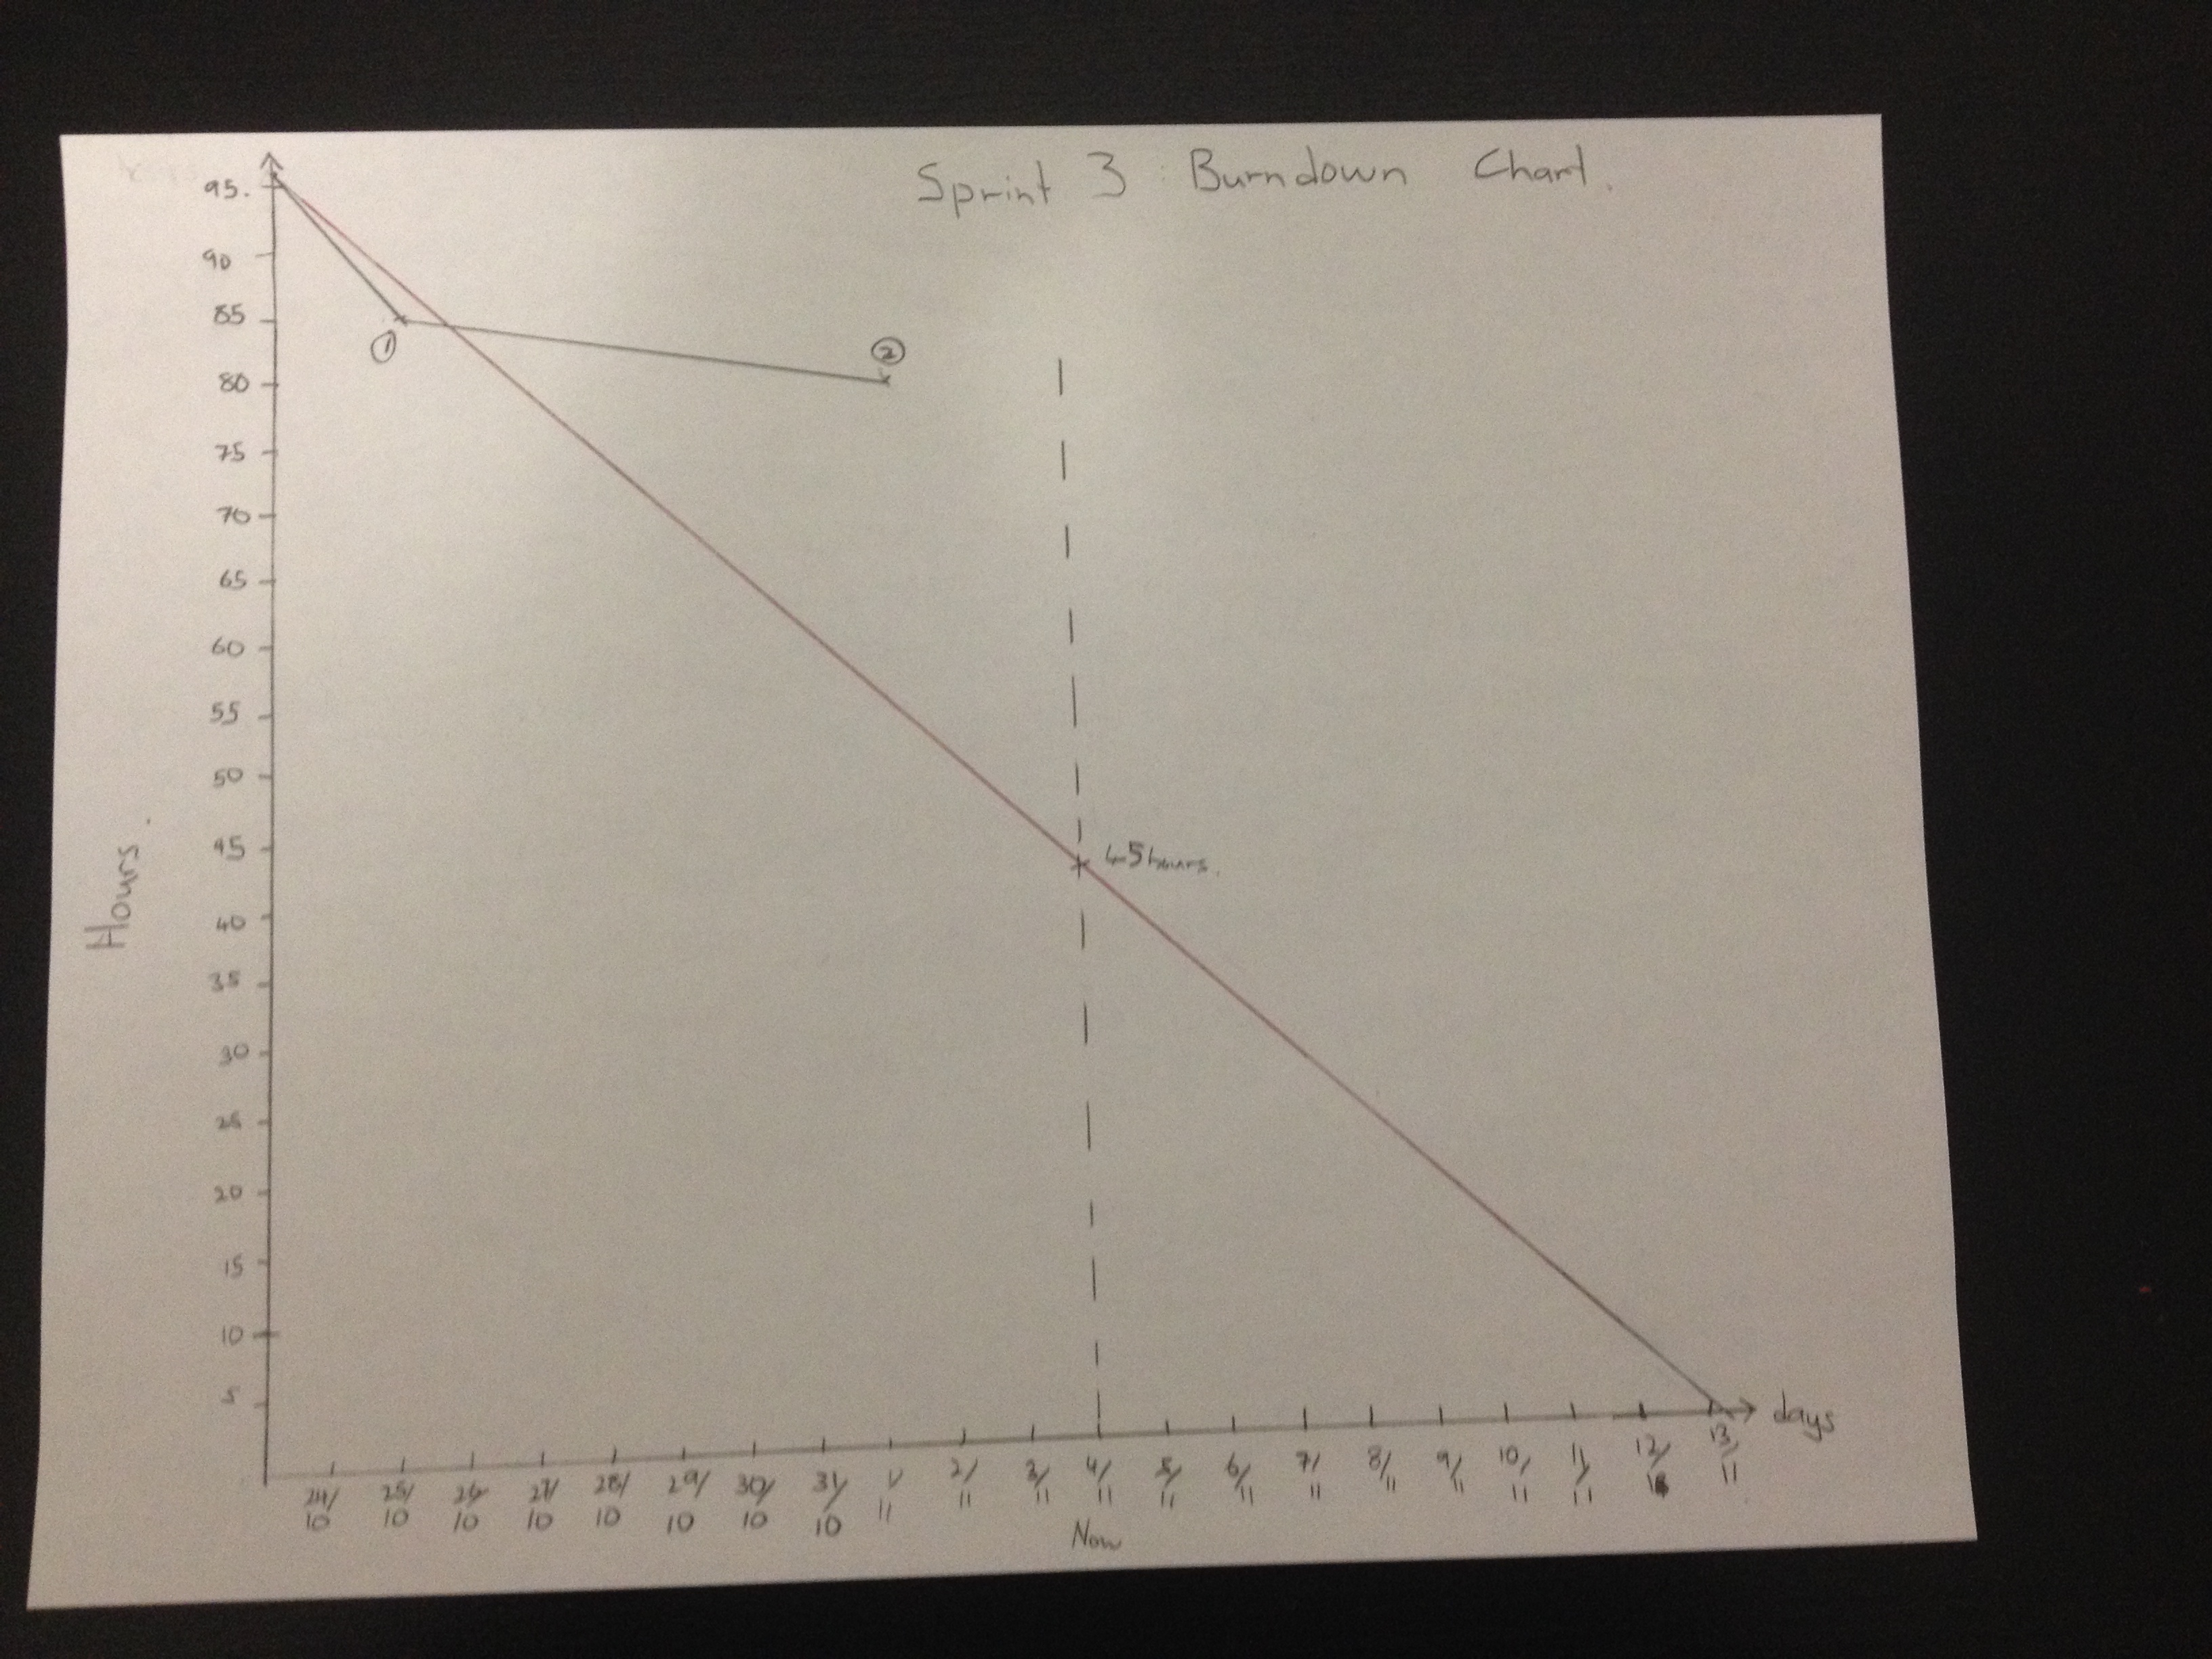 Sprint 3 Burndown Chart.
95.
90
85
①
②
80
75
70
65
60
55
50
45
45hours.
40
35
30
25
20
15
10
5
Hours.
days
24/10 25/10 26/10 27/10 28/10 29/10 30/10 31/10 1/11 2/11 3/11 4/11 5/11 6/11 7/11 8/11 9/11 10/11 11/11 12/11 13/11
Now